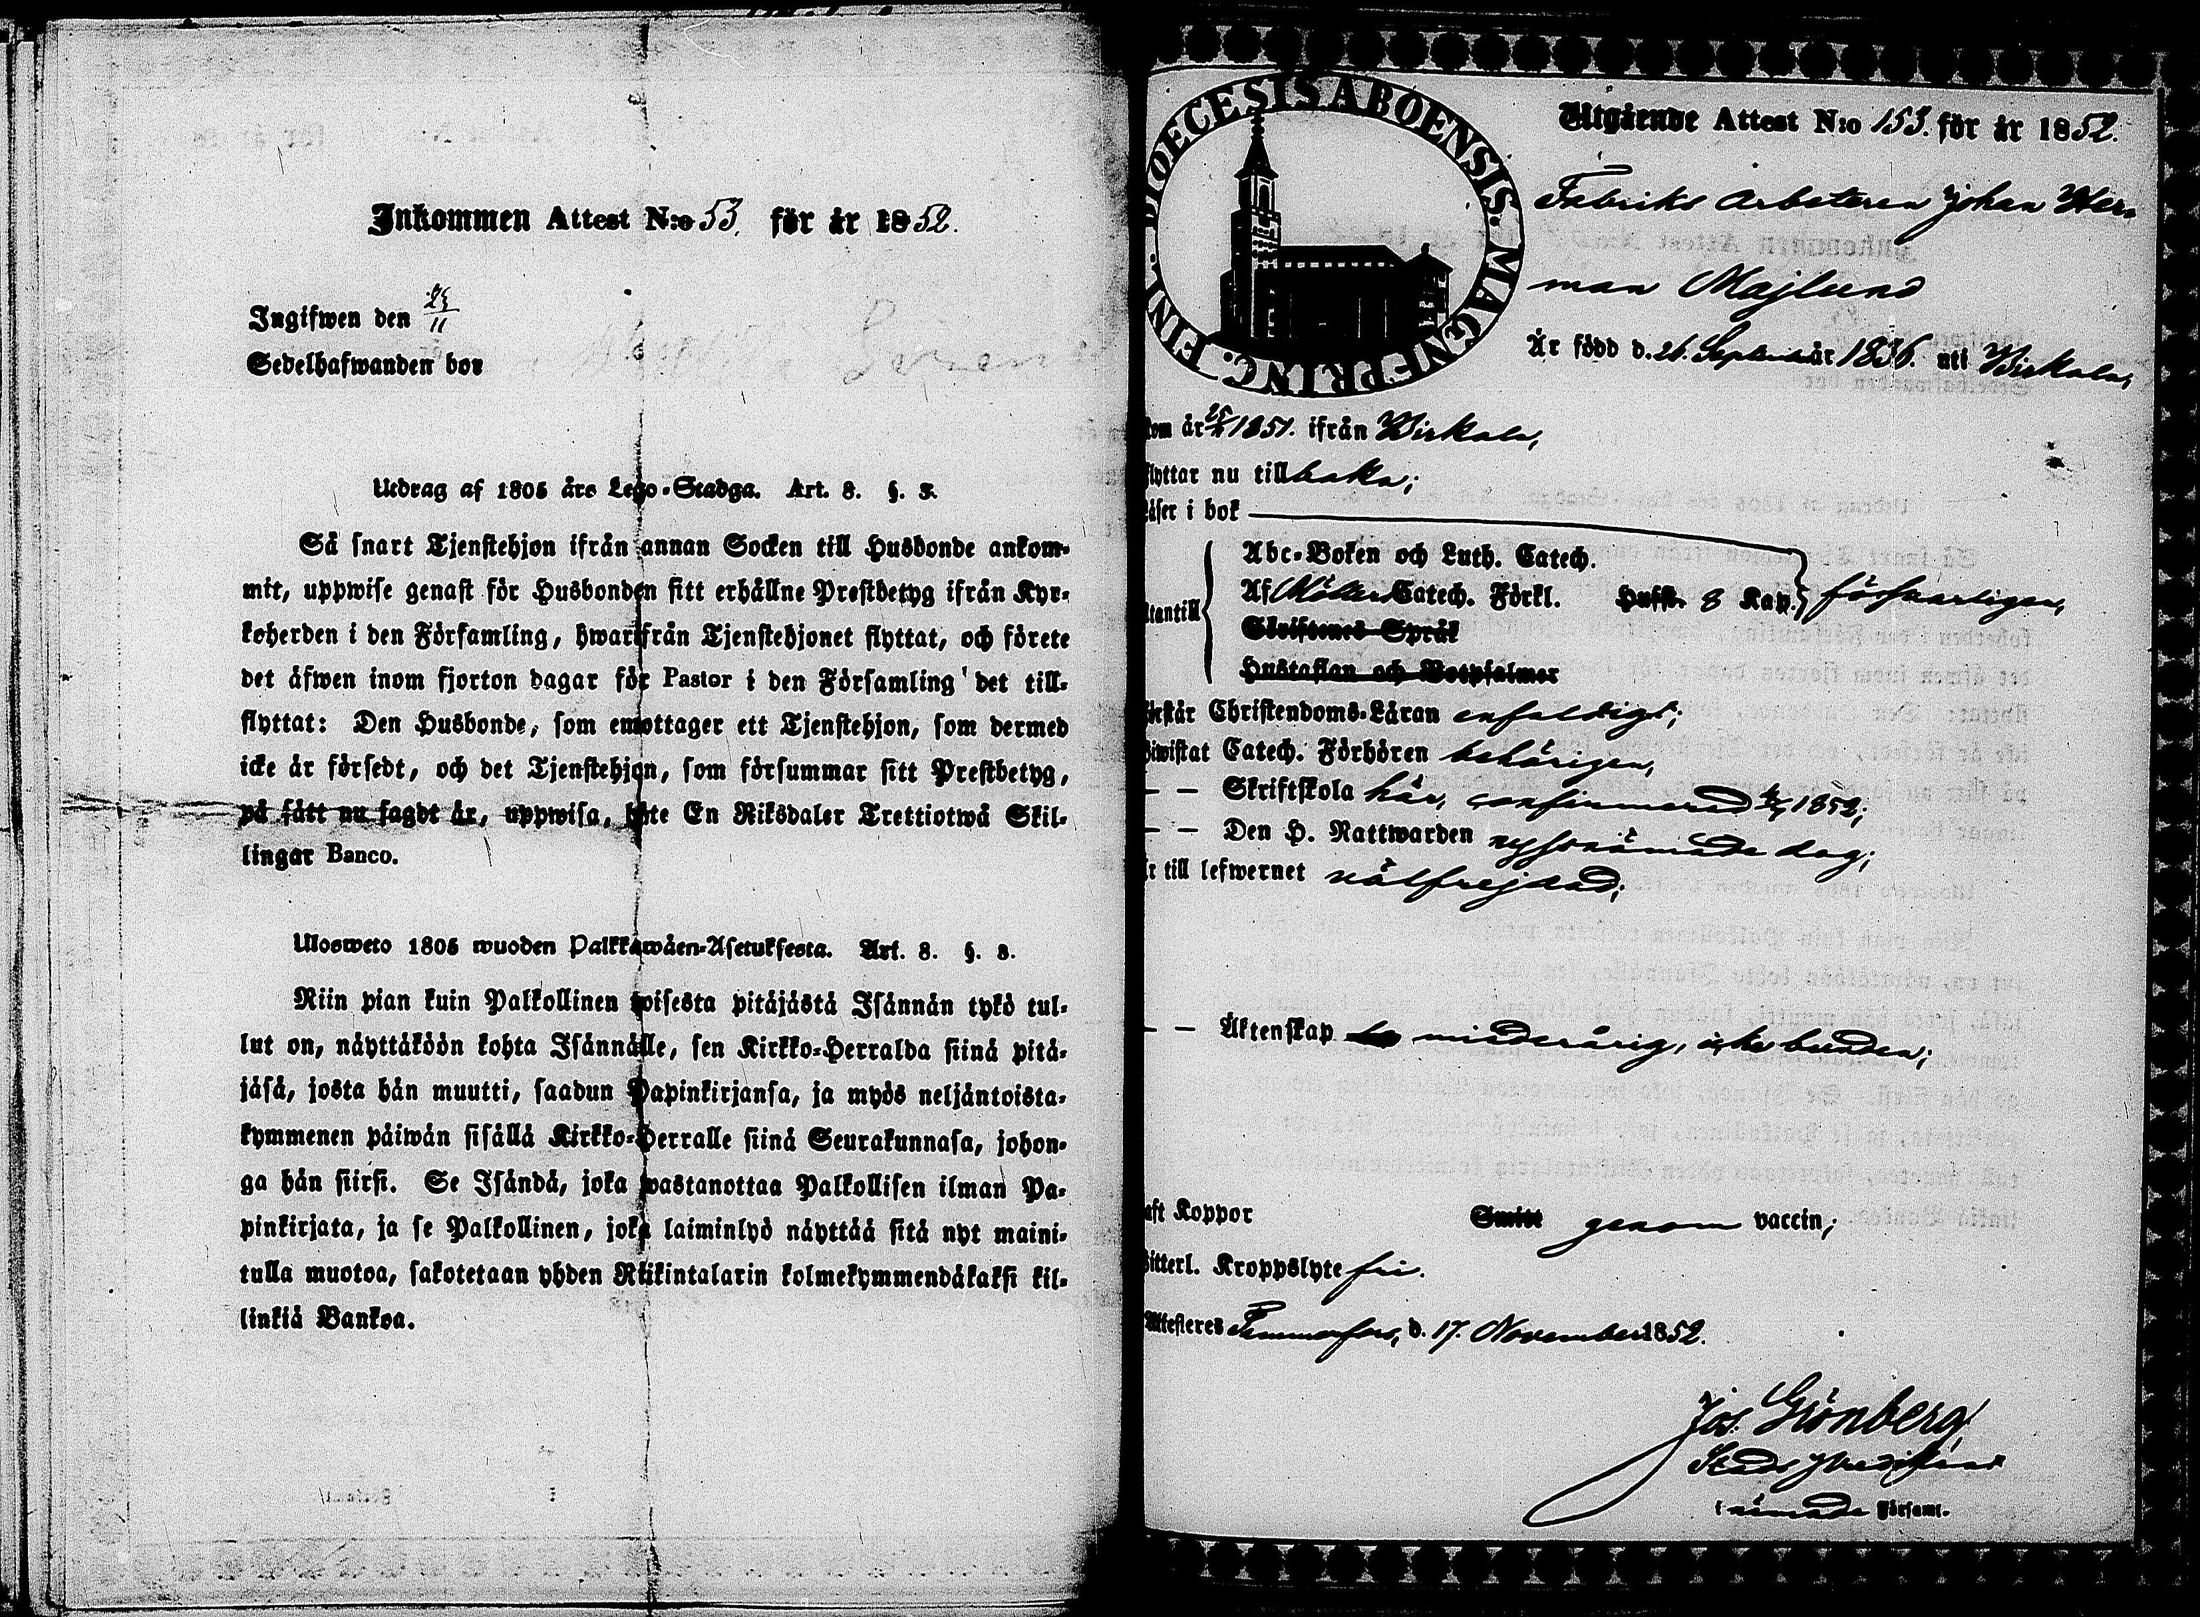 Inkommen Attest N:o 53. för år 1852.
Ingifwen den 23/11
Sedelhafwanden bor
Utdrag af 1805 års Lego-Stadga. Art. 8. §. 3.
Så snart Tjenstehjon ifrån annan Socken till Husbonde ankom-
mit, uppwise genast för Husbonden sitt erhållne Prestbetyg ifrån Kyr-
koherden i den Församling, hwarifrån Tjenstehjonet flyttat, och förete
det äfwen inom fjorton dagar för Pastor i den Församling det till-
flyttat: Den Husbonde, som emottager ett Tjenstehjon, som dermed
icke är försedt, och det Tjenstehjon, som försummar sitt Prestbetyg,
på sätt nu sagdt är, uppwisa, böte En Riksdaler Trettiotwå Skil-
lingar Banco.
Ulosweto 1805 wuoden Palkkawäen-Asetuksesta. Art. 8. §. 3.
Niin pian kuin Palkollinen toisesta pitäjästä Isännän tykö tul-
lut on, näyttäköön kohta Isännälle, sen Kirkko-Herralda siinä pitä-
jäsä, josta hän muutti, saadun Papinkirjansa, ja myös neljäntoista-
kymmenen päiwän sisällä Kirkko-Herralle siinä Seurakunnasa, johon-
ga hän siirsi. Se Isändä, joka wastanottaa Palkollisen ilman Pa-
pinkirjata, ja se Palkollinen, joka laiminlyö näyttää sitä nyt maini-
tulla muotoa, sakotetaan yhden Riikintalarin kolmekymmendäkaksi kil-
linkiä Bankoa.
DIOECESIS ABOENSIS. MAGNE PRINC. FINL.
Utgående Attest N:o 153. för år 1852.
Fabriks Arbetaren Johan Her-
man Majlund
Är född d. 26. September år 1836. uti Birkala,
kom år 1851. ifrån Birkala,
flyttar nu tillbaka;
Läser i bok
Abc-Boken och Luth. Catech.
Af Möllers Catech. Förkl. Hufst. 8 Kap. försvarligen,
utantill
Skriftenes Språk
Hustaflan och Botpsalmer
förstår Christendoms-Läran enfaldigt;
Biwistat Catech. Förhören behörigen,
— — Skriftskola här, confirmerad 1852;
— — Den H. Nattwarden nyssnämnde dag;
är till lefwernet välfrejdad;
— — Äktenskap minderårig, icke bunden;
haft Koppor Smitt genom vaccin;
Witterl. Kroppslyte fri.
Attesteres Tammerfors, d. 17. November 1852.
Jos. Grönberg
Stads Predikant
i nämnde Församl.